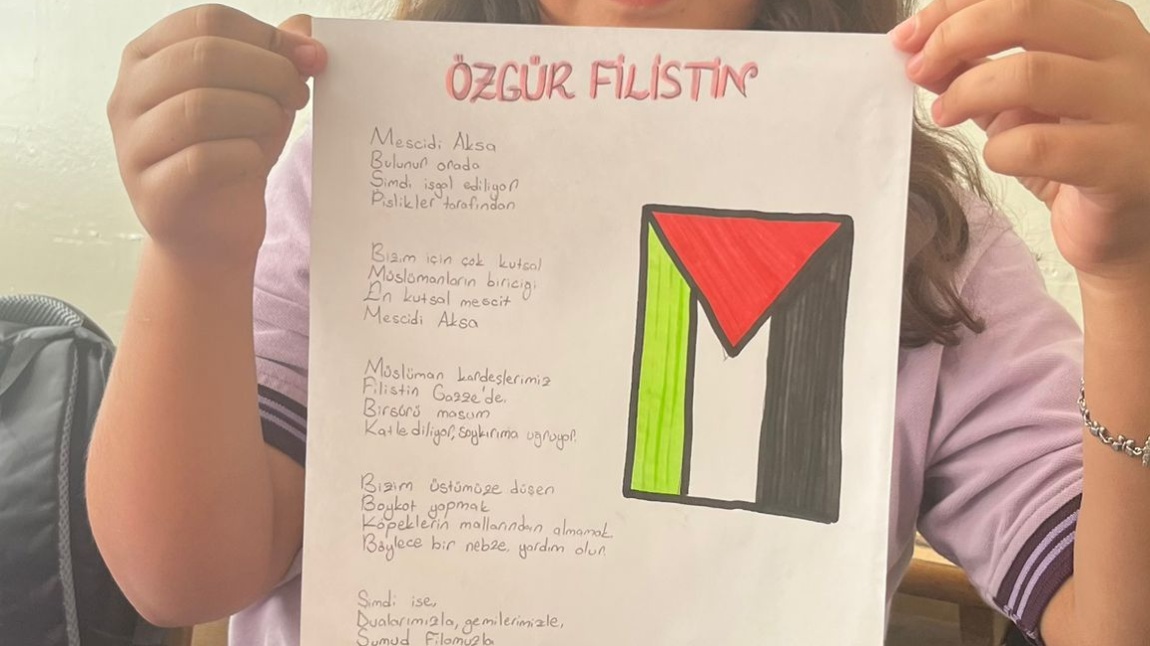 ÖZGÜR FİLİSTİN
Mescidi Aksa
Bulunur orada
Şimdi işgal ediliyor
Pislikler tarafından
Bizim için çok kutsal
Müslümanların biriciği
En kutsal mescit
Mescidi Aksa
Müslüman kardeşlerimiz
Filistin Gazze'de,
Birsürü masum
Katlediliyor, soykırıma uğruyor.
Bizim üstümüze düşen
Boykot yapmak
Köpeklerin mallarından almamak
Böylece bir nebze, yardım olur
Şimdi ise,
Dualarımızla, gemilerimizle,
Sumud Filomuzla